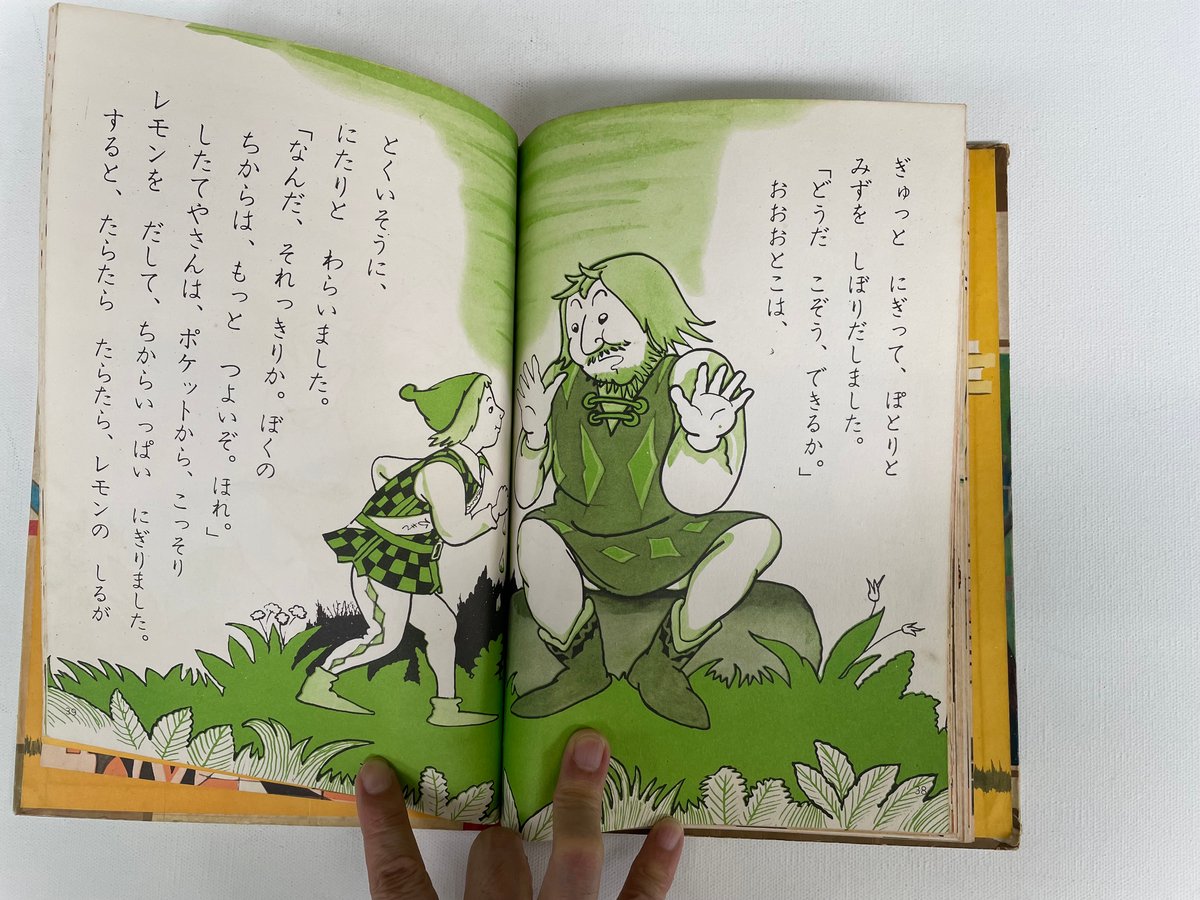 ぎゅっと にぎって、ぽとりと
みずを しぼりだしました。
「どうだ こぞう、できるか。」
おおおとこは、
38
とくいそうに、
にたりと わらいました。
「なんだ、それっきりか。ぼくの
ちからは、もっと つよいぞ。ほれ。」
したてやさんは、ポケットから、こっそり
レモンを だして、ちからいっぱい にぎりました。
すると、たらたら たらたら、レモンの しるが
39